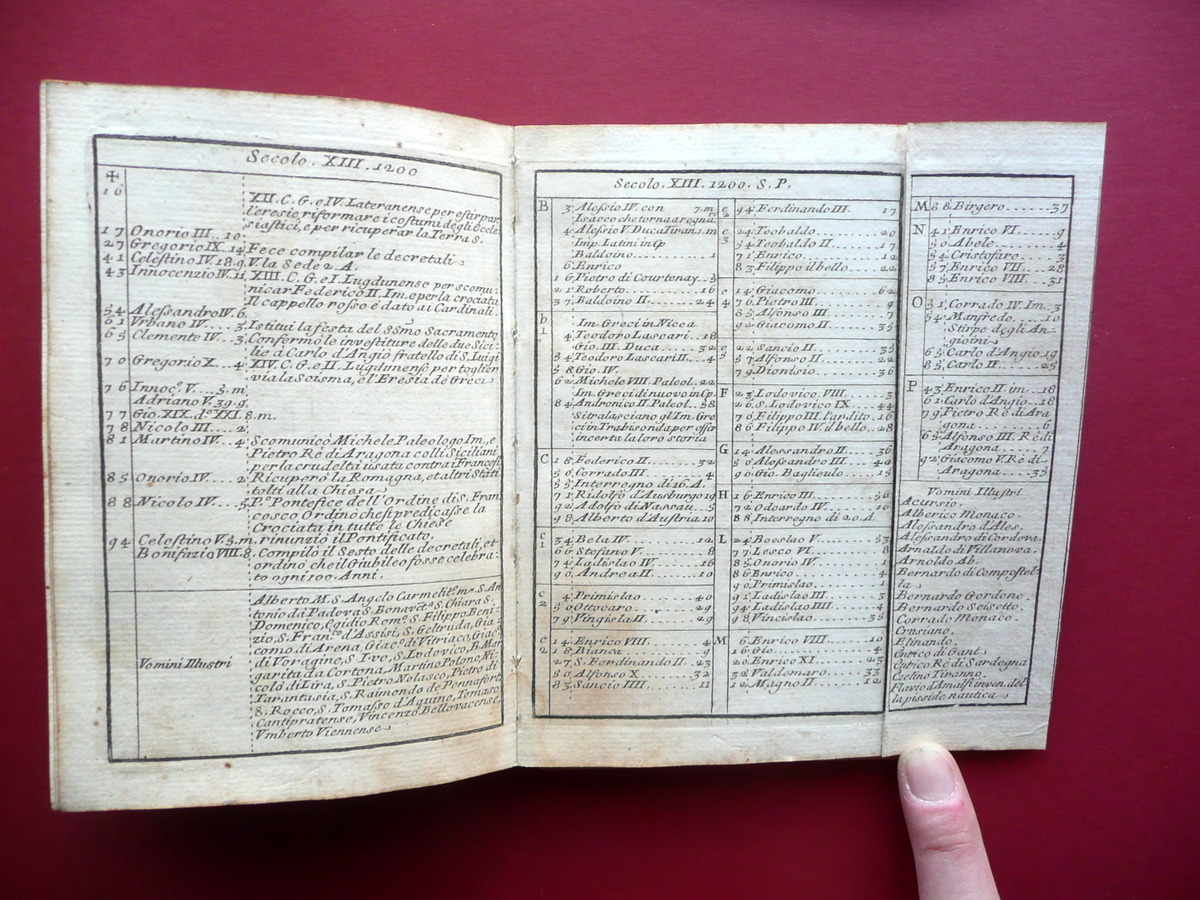 Secolo. XIII. 1200
✠
16
XII. C. G. e IV. Lateranense per estirpar
l'eresie, riformare i costumi degli Eccle
siastici, e per ricuperar la Terra S.
17 Onorio III.. 10.
27 Gregorio IX. 14. Fece compilar le decretali
41 Celestino IV. 18. g. V. la Sede 2. A.
43 Innocenzio IV. 11. XIII. C. G. e I. Lugdunense per scomu
nicar Federico II. Im. e per la crociata
Il cappello rosso è dato ai Cardinali.
54 Alessandro IV. 6.
61 Vrbano IV... 3. Istitui la festa del SSmo Sacramento
65 Clemente IV.. 3. Confermò le investiture delle due Sici
lie à Carlo d'Angiò fratello di S. Luigi
70 Gregorio X... 4. XIV. C. G. e II. Lugdunense per toglier
via la Scisma, e l'Eresia de Greci
76 Innoc.º V.... 5. m.
Adriano V. 39. g.
77 Gio. XIX. dº XXI. 8. m.
78 Nicolo III.... 2.
81 Martino IV.. 4. Scomunicò Michele Paleologo Im., e
Pietro Rè di Aragona colli Siciliani
per la crudeltà usata contra i Francesi
85 Onorio IV.... 2. Ricuperò la Romagna, et altri Stati
tolti alla Chiesa
88 Nicolo IV.... 5. P.º Pontefice dell'Ordine di S. Fran
cesco Ordinò che si predicasse la
Crociata in tutte le Chiese
94 Celestino V. 5. m. rinunziò il Pontificato.
Bonifazio VIII. 8. Compilò il Sesto delle decretali, et
ordinò che il Giubileo fosse celebra:
to ogni 100. Anni.
Alberto M. S. Angelo Carmelit.º S. An
tonio da Padova S. Bonavẽt.ª S. Chiara S.
Domenico, Egidio Rom.º S. Filippo Beni
zio, S. Franc.º d'Assisi, S. Geltruda, Gia
como di Arena, Giac.º di Vitriaco, Giac.º
Vomini Illustri di Voragine, S. Ivo, S. Lodovico, B. Mar
garita da Cortona, Martino Polono, Ni
colò di Lira, S. Pietro Nolasco, Pietro di
Tarantasia, S. Raimondo de Pennafort
S. Rocco, S. Tomasso d'Aquino, Tomaso
Cantipratense, Vincenzo Bellovacense,
Vmberto Viennense
Secolo. XIII. 1200. S. P.
B 3 Alessio IV. con 7. m
Isacco che torna a regnar
4 Alessio V. Duca Tiran. 1. m
Imp. Latini in Cp
Baldoino...... 1
6 Enrico
16 Pietro di Courtenay.. 5
21 Roberto...... 16
37 Baldoino II..... 24
b 1 Im. Greci in Nicea
4 Teodoro Lascari.. 18
Gio. III. Duca.... 32
54 Teodoro Lascari II.. 4
58 Gio. IV.
62 Michele VIII. Paleol.. 22
Im. Greci di nuovo in Cp.
84 Andronico II. Paleol.. 58
Si tralasciano gl'Im. Gre
ci in Trabisonda per esser
incerta la loro storia
C 18 Federico II...... 32
50 Corrado III...... 4
55 Interregno di 16. A.
71 Ridolfo d'Ausburgo 19
92 Adolfo di Nassau.. 5
98 Alberto d'Austria 10
c 1 34 Bela IV........ 12
66 Stefano V...... 8
74 Ladislao IV..... 16
90 Andrea II...... 10
c 2 4 Primislao...... 40
50 Ottocaro...... 29
79 Vingisla II..... 29
e 2 14 Enrico VIII..... 4
18 Bianca........ 9
27 S. Ferdinando II.. 23
50 Alfonso X..... 32
83 Sancio IIII..... 11
e 2 94 Ferdinando III.. 17
e 3 24 Teobaldo....... 20
54 Teobaldo II..... 17
71 Enrico........ 12
83 Filippo il bello.. 22
e 4 14 Giacomo....... 62
76 Pietro III...... 9
85 Alfonso III..... 7
92 Giacomo II..... 35
e 5 22 Sancio II...... 35
57 Alfonso II..... 22
79 Dionisio....... 36
F 23 Lodovico VIII... 3
26 S. Lodovico IX.. 44
70 Filippo III. l'ardito. 16
86 Filippo IV. il bello.. 28
G 14 Alessandro II... 36
50 Alessandro III.. 40
90 Gio. Baglieulo... 15
H 16 Enrico III...... 56
72 Odoardo IV..... 10
88 Interregno di 20 A
L 24 Boeslao V...... 53
77 Lesco VI...... 8
85 Onorio IV...... 1
86 Enrico........ 4
90 Primislao......
91 Ladislao III.... 4
94 Ladislao IIII... 4
98 Vincislao...... 35
M 6 Enrico VIII..... 10
16 Gio........... 4
20 Enrico XI...... 23
32 Valdemaro..... 33
12 Magno II...... 12
M 88 Birgero..... 37
N 41 Enrico VI..... 9
50 Abele....... 4
54 Cristofaro.... 3
57 Enrico VII... 28
85 Enrico VIII.. 31
O 51 Corrado IV. Im. 3
54 Manfredo.. 10
Stirpe degli An
gioini
65 Carlo d'Angiò 19
85 Carlo II..... 25
P 43 Enrico II im.. 18
61 Carlo d'Angiò. 18
79 Pietro Rè di Ara
gona....... 6
65 Alfonso III. Rè di
Aragona..... 7
92 Giacomo V. Rè di
Aragona.... 35
Vomini Illustri
Accursio.
Alberico Monaco.
Alessandro d'Ales.
Alessandro di Cordova.
Arnaldo di Villanova.
Arnoldo Ab.
Bernardo di Compostel
la
Bernardo Gordono.
Bernardo Seisetto.
Corrado Monaco.
Crusiano.
Elinando.
Enrico di Gant
Enrico Rè di Sardegna
Ezelino Tiranno.
Flavio d'Amalfi inven. del
la pisside nautica